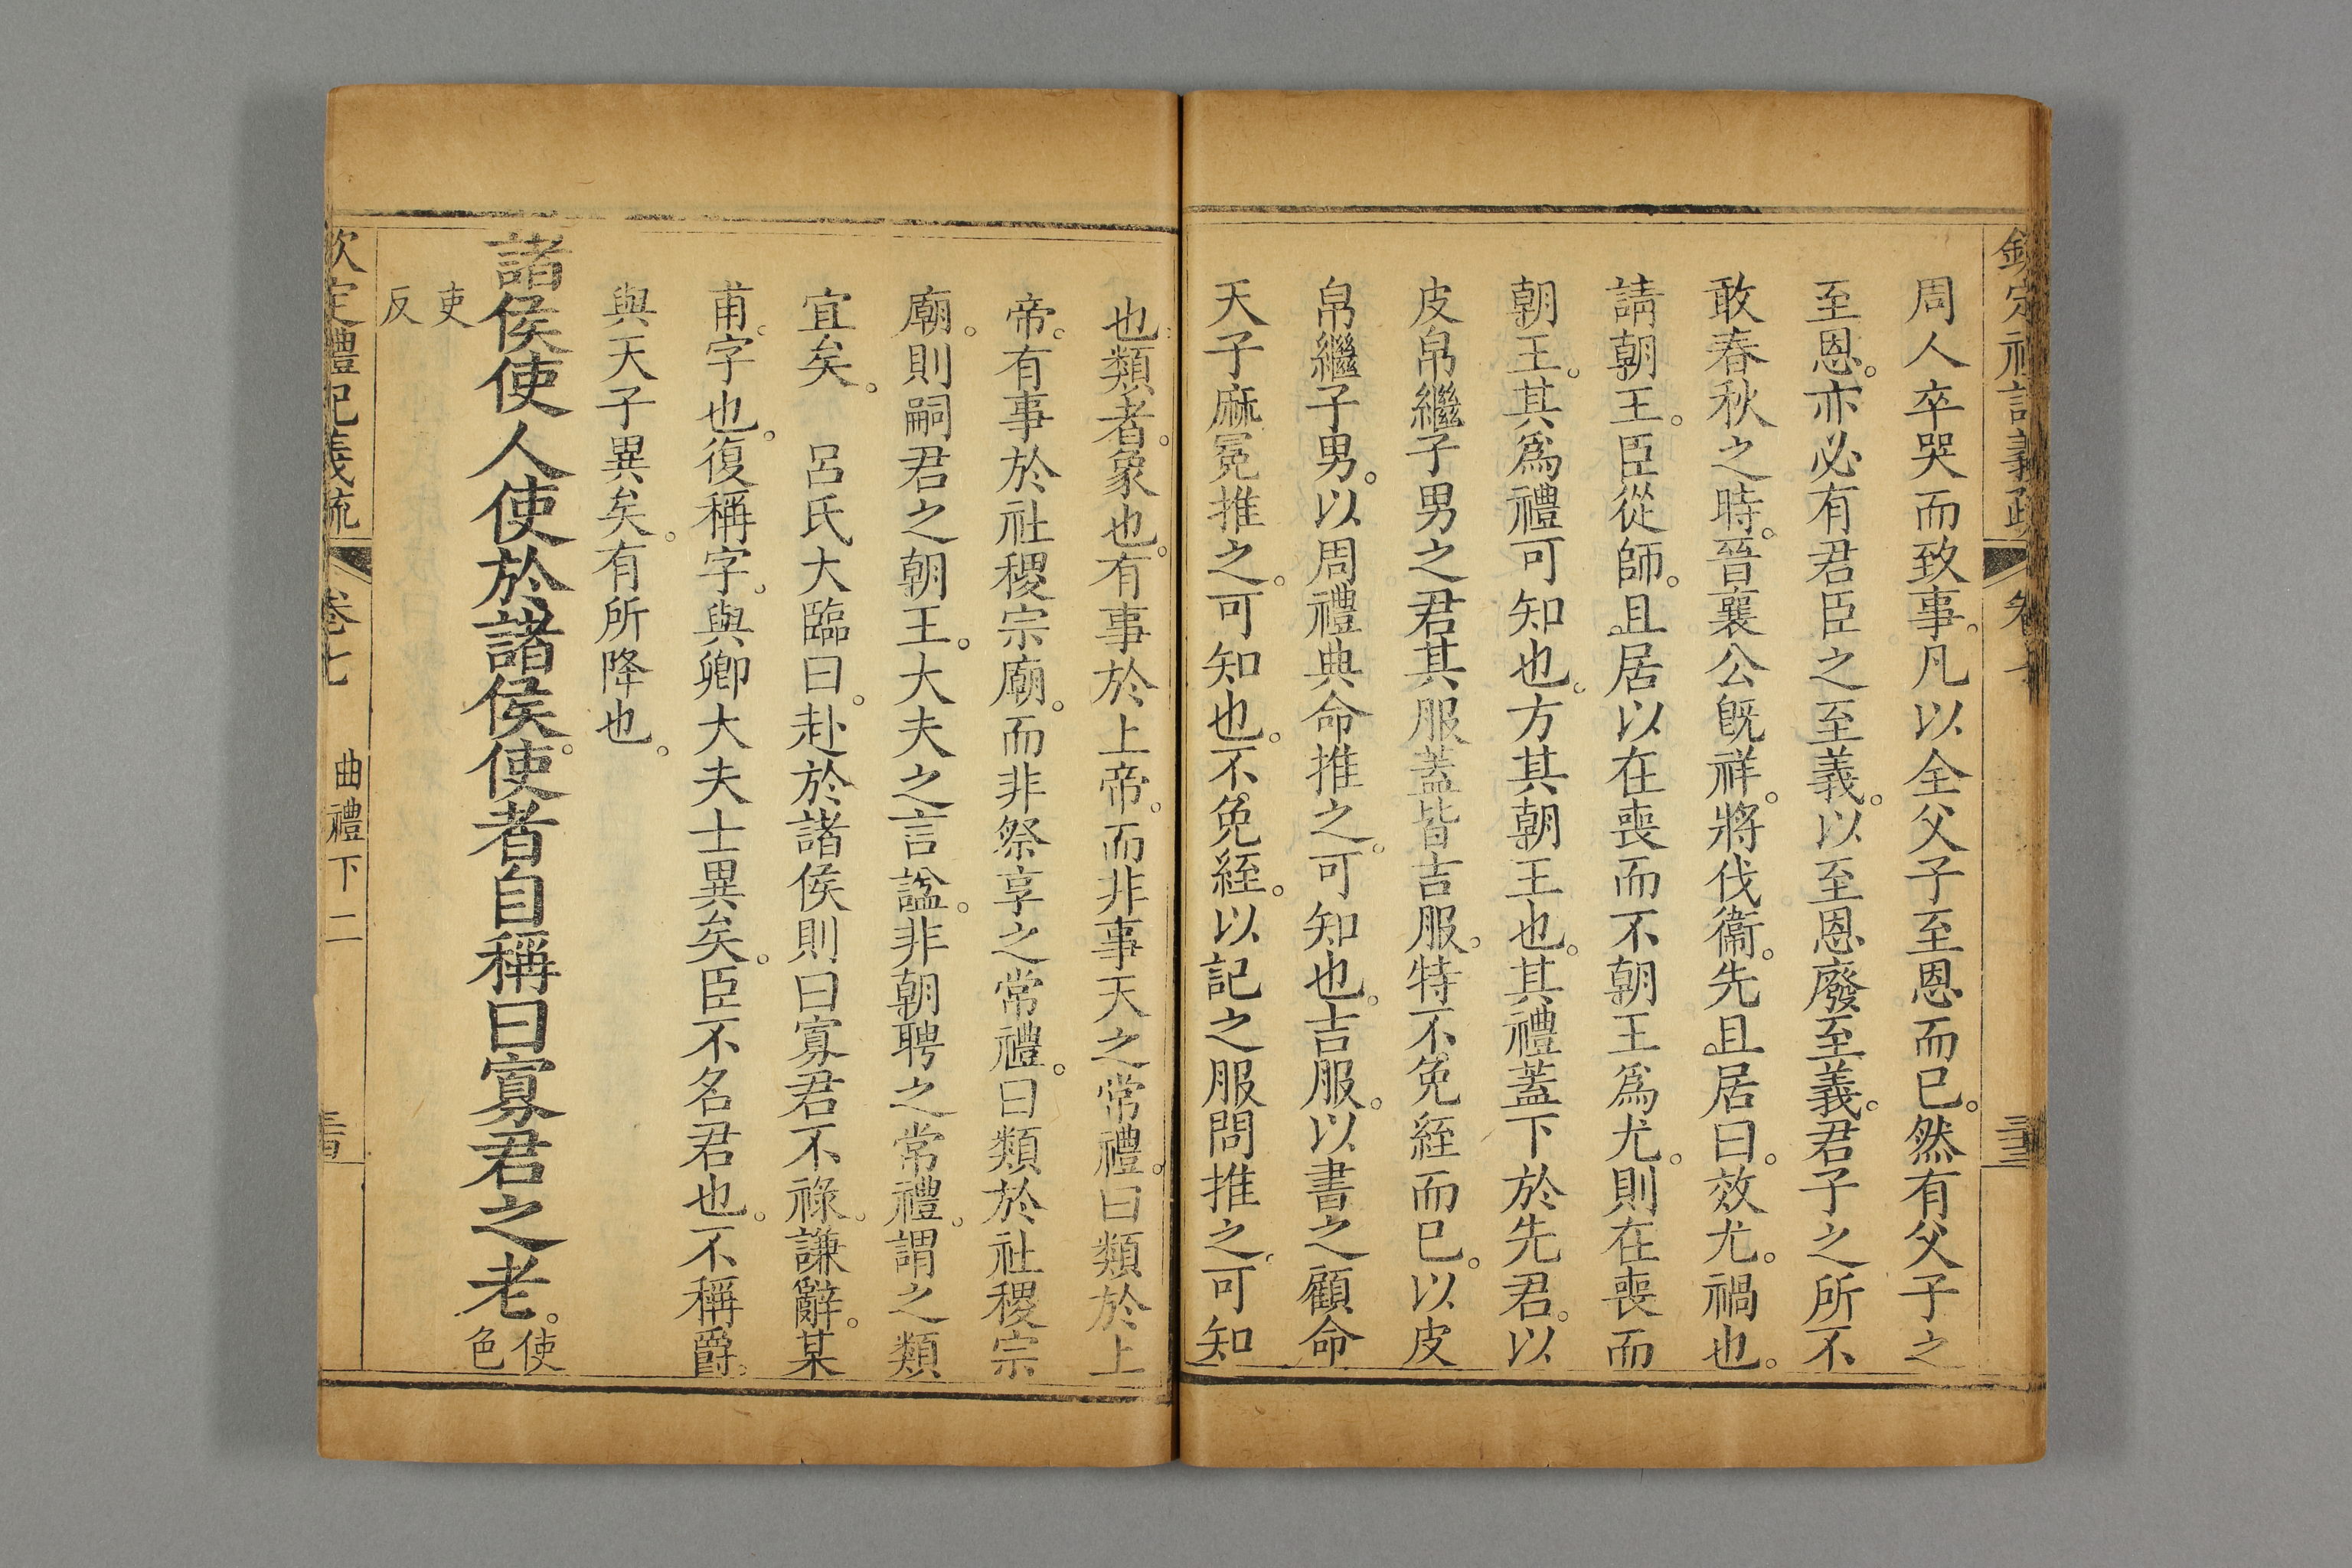 欽定禮記義疏 卷七
周人卒哭而致事。凡以全父子至恩而已。然有父子之
至恩。亦必有君臣之至義。以至恩廢至義。君子之所不
敢春秋之時。晉襄公旣祥。將伐衞。先且居曰。效尤。禍也。
請朝王。臣從師。且居以在喪而不朝王爲尤。則在喪而
朝王。其爲禮可知也。方其朝王也。其禮蓋下於先君。以
皮帛繼子男之君其服蓋皆吉服。特不免絰而已。以皮
帛繼子男。以周禮典命推之。可知也。吉服。以書之顧命
天子麻冕推之。可知也。不免絰。以記之服問推之。可知
也類者。象也。有事於上帝。而非事天之常禮。曰類於上
帝。有事於社稷宗廟。而非祭享之常禮。曰類於社稷宗
廟。則嗣君之朝王。大夫之言謚。非朝聘之常禮。謂之類
宜矣。　呂氏大臨曰。赴於諸侯則曰寡君不祿。謙辭。某
甫。字也。復稱字。與卿大夫士異矣。臣不名君也。不稱爵。
與天子異矣。有所降也。
諸侯使人使於諸侯。使者自稱曰寡君之老。使色
吏反
欽定禮記義疏 卷七 曲禮下二